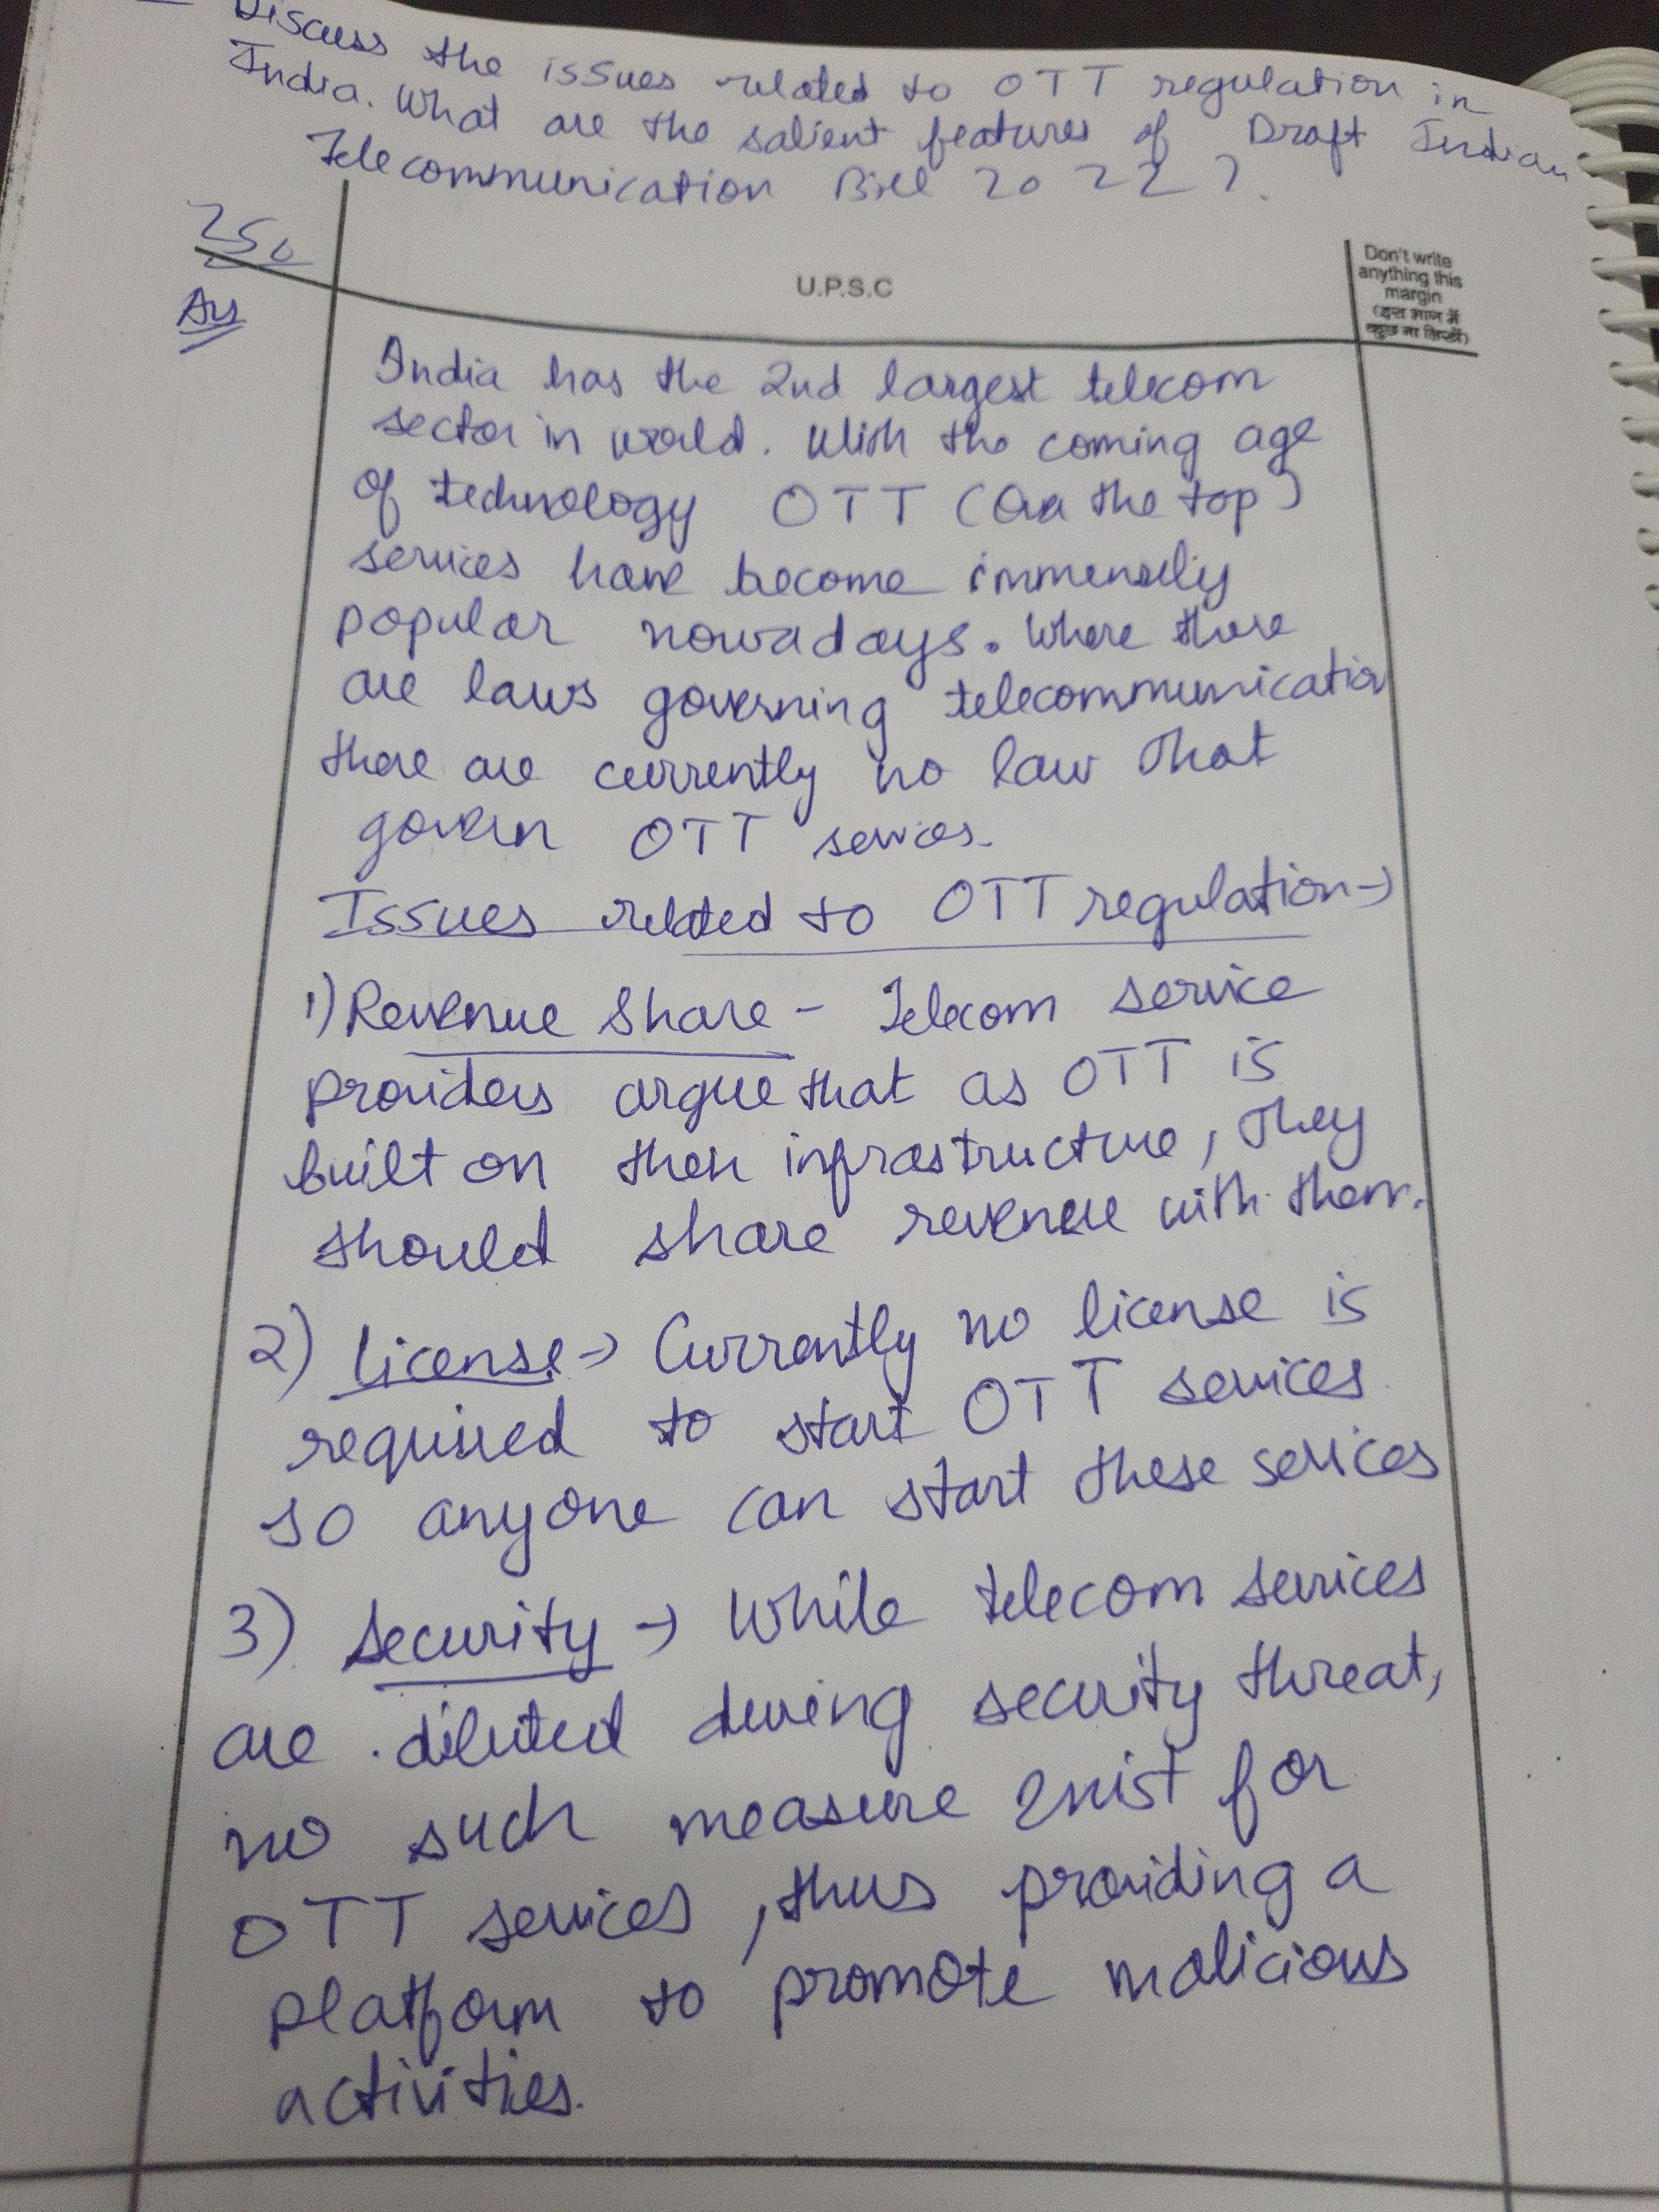 Discuss the issues related to OTT regulation in
India. What are the salient features of Draft Indian
Telecommunication Bill 2022?
250
U.P.S.C
Don't write
anything this
margin
(इस भाग में
कुछ ना लिखें)
Ans
India has the 2nd largest telecom
sector in world. With the coming age
of technology OTT (Over the top)
services have become immensely
popular nowadays. Where there
are laws governing telecommunication
there are currently no law that
govern OTT services.
Issues related to OTT regulation→
1) Revenue Share - Telecom service
providers argue that as OTT is
built on their infrastructure, they
should share revenue with them.
2) License → Currently no license is
required to start OTT services
so anyone can start these services
3) Security → While telecom services
are diluted during security threat,
no such measure exist for
OTT services, thus providing a
platform to promote malicious
activities.